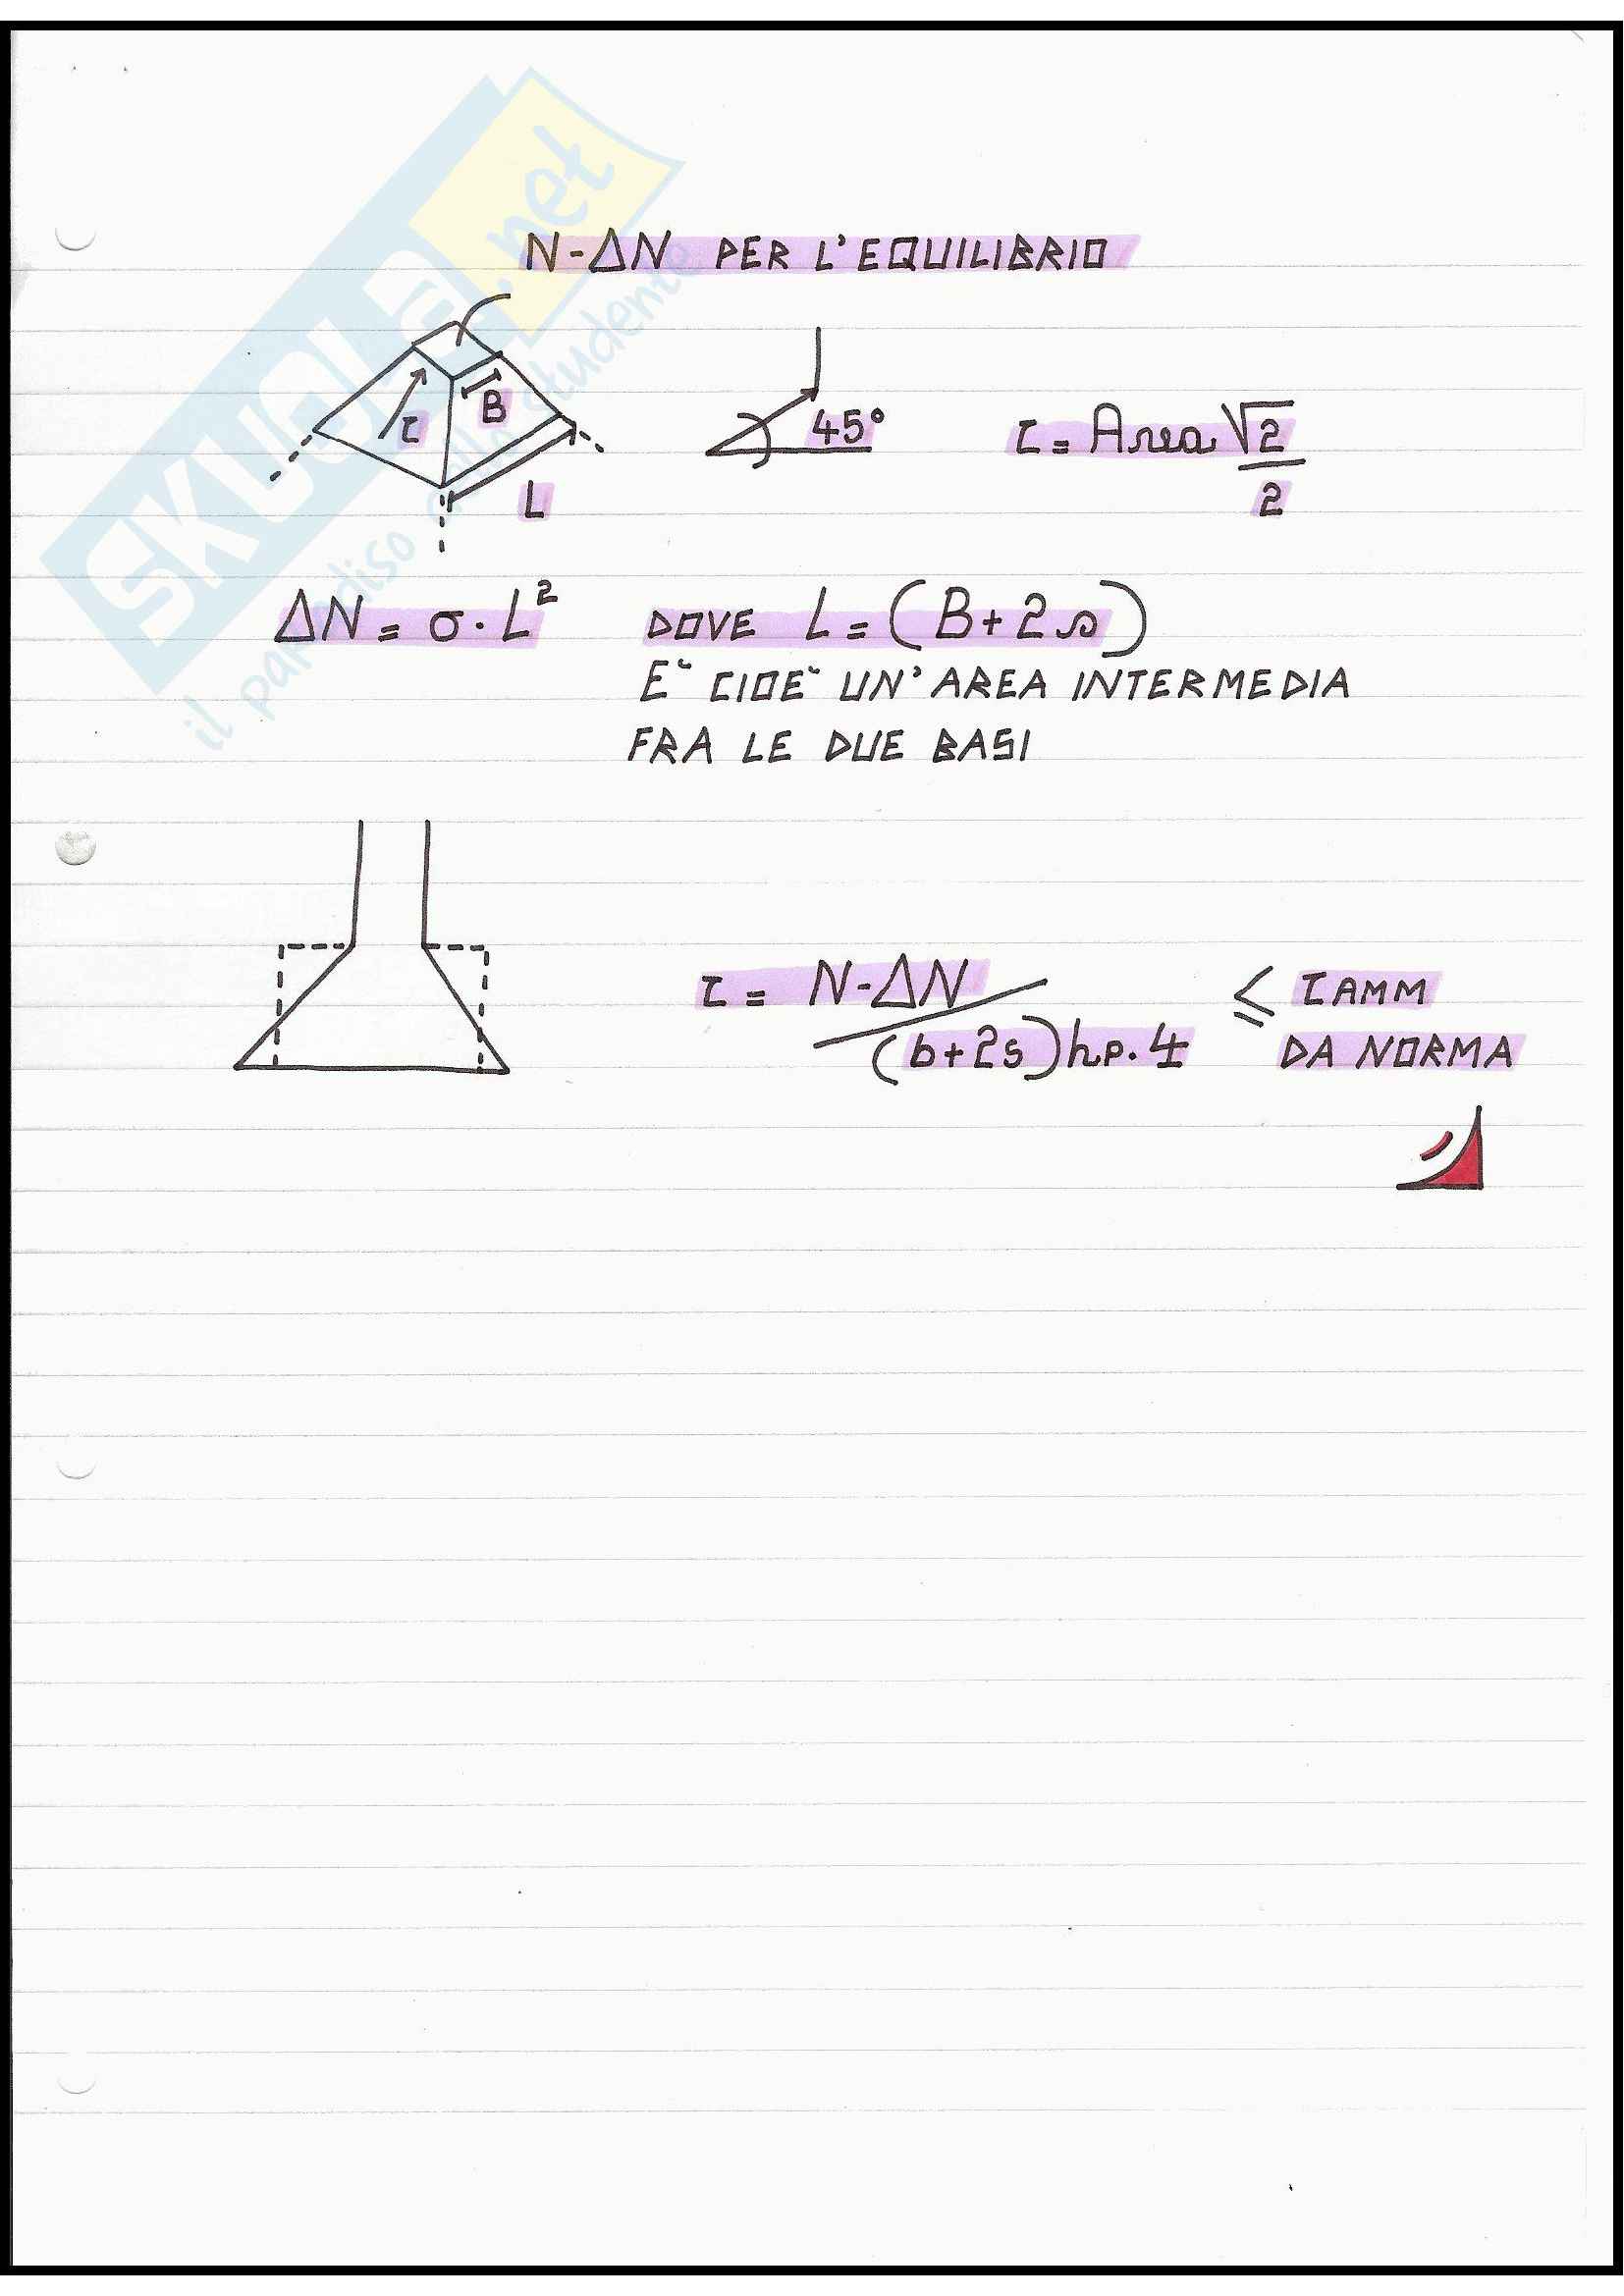 SKUOLA.net
il paradiso dello studente
N-ΔN PER L'EQUILIBRIO
τ
B
L
45°
τ = Area √2/2
ΔN = σ · L² DOVE L = (B+2s)
E` CIOE` UN' AREA INTERMEDIA
FRA LE DUE BASI
τ = N-ΔN / (b+2s)hp·4 ≤ τAMM
DA NORMA